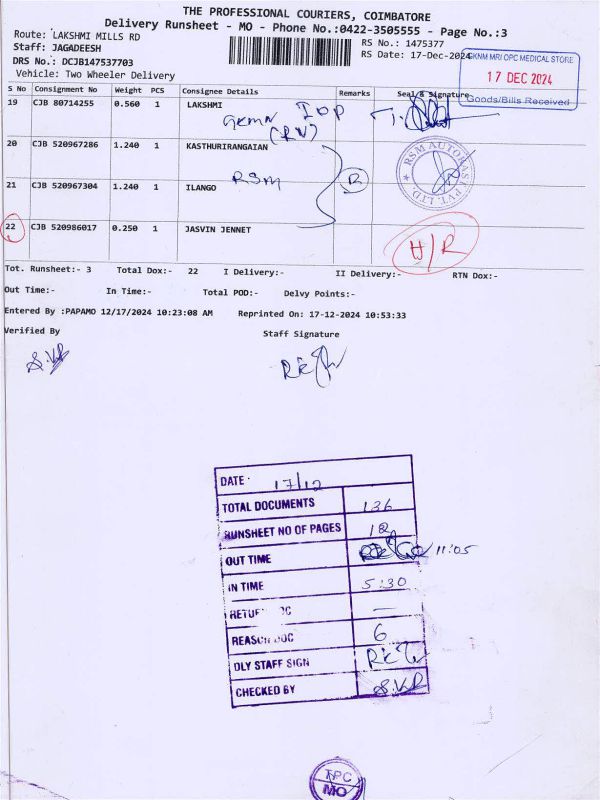 THE PROFESSIONAL COURIERS, COIMBATORE
Delivery Runsheet - MO - Phone No.:0422-3505555 - Page No.:3
Route: LAKSHMI MILLS RD
RS No.: 1475377
Staff: JAGADEESH
RS Date: 17-Dec-2024
DRS No.: DCJB147537703
Vehicle: Two Wheeler Delivery
GKNM MRI OPC MEDICAL STORE
17 DEC 2024
Goods/Bills Received
S No Consignment No Weight PCS Consignee Details Remarks Seal & Signature
19 CJB 80714255 0.560 1 LAKSHMI
GKMN IOP
(RN)
20 CJB 520967286 1.240 1 KASTHURIRANGAIAN
RSM AUTOKAST PVT. LTD.
21 CJB 520967304 1.240 1 ILANGO
RSM
R
22 CJB 520986017 0.250 1 JASVIN JENNET
H/R
Tot. Runsheet:- 3 Total Dox:- 22 I Delivery:- II Delivery:- RTN Dox:-
Out Time:- In Time:- Total POD:- Delvy Points:-
Entered By :PAPAMO 12/17/2024 10:23:08 AM Reprinted On: 17-12-2024 10:53:33
Verified By Staff Signature
S.VR
DATE: 17/12
TOTAL DOCUMENTS 136
RUNSHEET NO OF PAGES 12
OUT TIME 11:05
IN TIME 5:30
RETU DC —
REASON DOC 6
DLY STAFF SIGN
CHECKED BY S.VR
TPC
MO